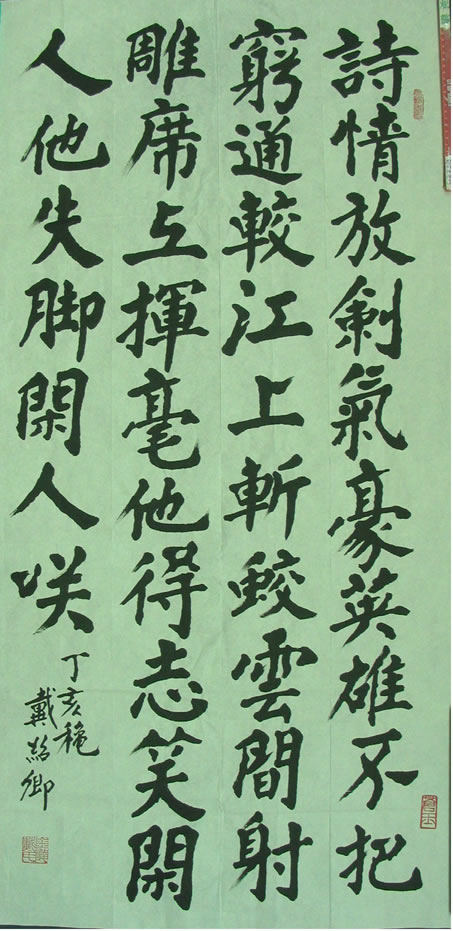 詩情放劍氣豪英雄不把
窮通較江上斬蛟雲間射
雕席上揮毫他得志笑閑
人他失脚閑人咲
丁亥穐
戴紹卿